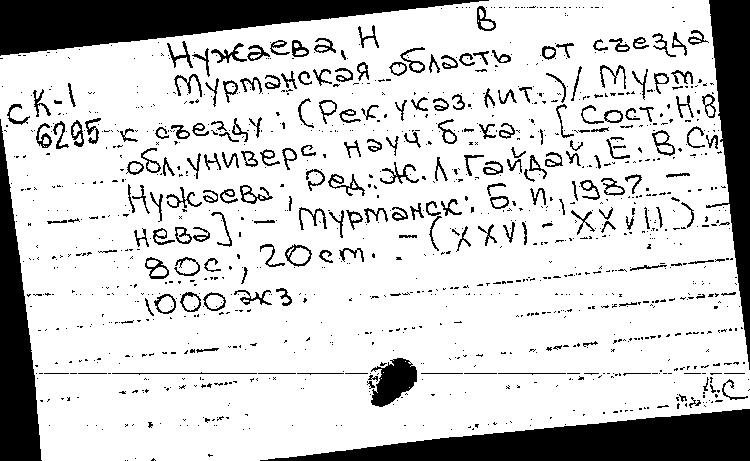 Нужаева, Н В
Мурманская область от съезда
СК-1
6295 к съезду: (Рек. указ. лит.) / Мурм.
обл. универс. науч. б-ка; [Сост.: Н.В.
Нужаева; Ред.: Ж.Л. Гайдай, Е. В. Си
нева]. - Мурманск: Б. и., 1987. -
80с.; 20 ст. - (XXVI - XXVII) -
1000 экз.